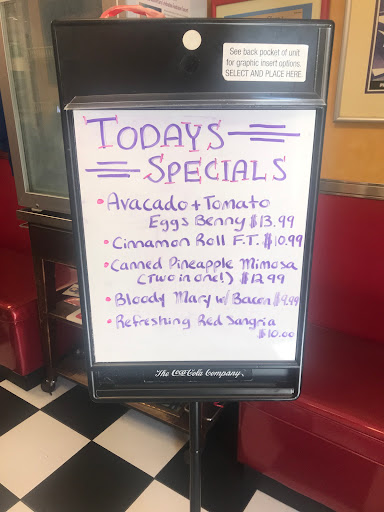 See back pocket of unit
for graphic insert options.
SELECT AND PLACE HERE
TODAYS
SPECIALS
• Avacado + Tomato
Eggs Benny $13.99
• Cinnamon Roll F.T. $10.99
• Canned Pineapple Mimosa
(Two in one!) $12.99
• Bloody Mary w/ Bacon $9.99
• Refreshing Red Sangria
$10.00
The Coca-Cola Company